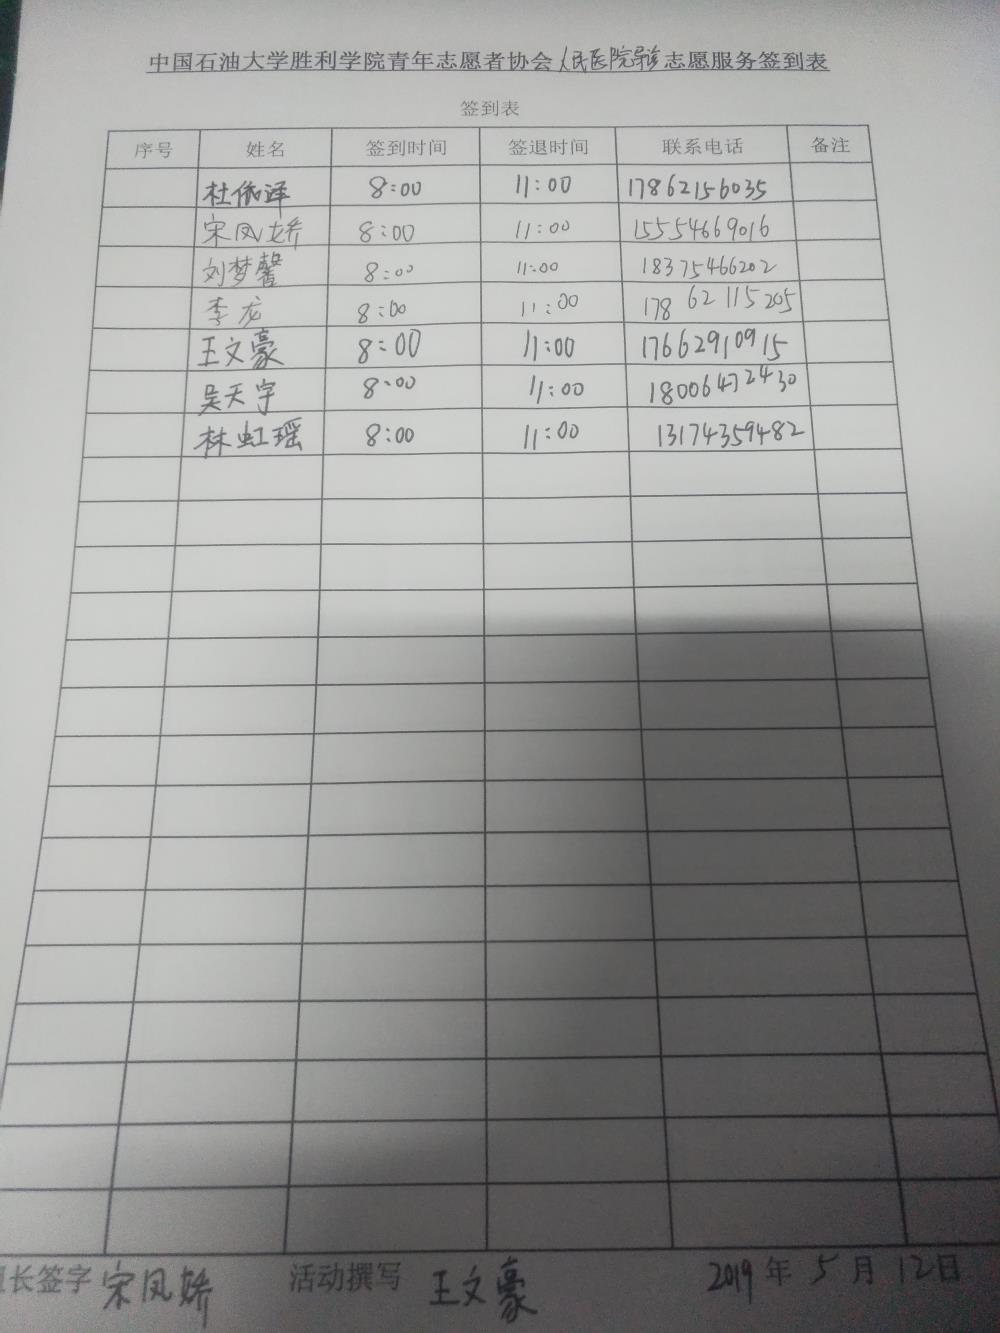 中国石油大学胜利学院青年志愿者协会人民医院导诊志愿服务签到表
签到表
序号 姓名 签到时间 签退时间 联系电话 备注
杜依泽 8:00 11:00 17862156035
宋凤娇 8:00 11:00 15554669016
刘梦馨 8:00 11:00 18375466202
李龙 8:00 11:00 17862115205
王文豪 8:00 11:00 17662910915
吴天宇 8:00 11:00 18006472430
林虹瑶 8:00 11:00 13174359482
长签字 宋凤娇 活动撰写 王文豪 2019年5月12日